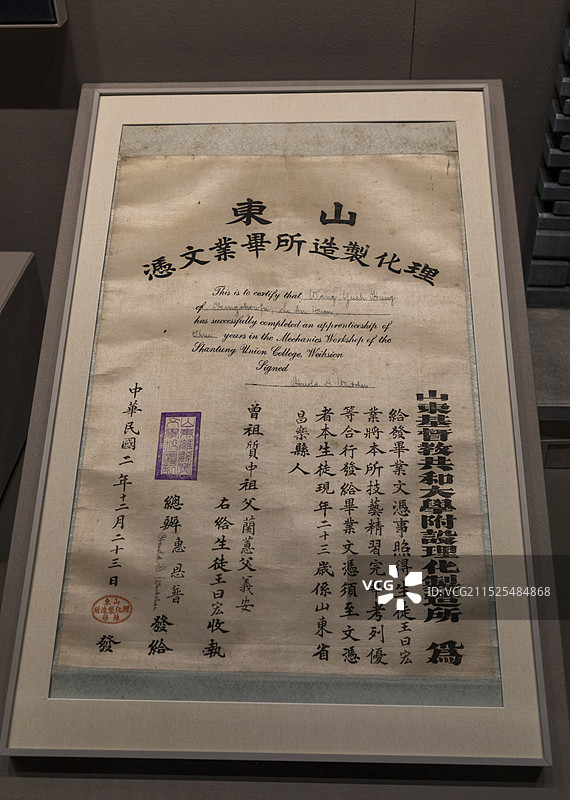 山東
理化製造所畢業文憑
This is to certify that Wang Yueh Hung
of
has successfully completed an apprenticeship of
Three years in the Mechanics Workshop of the
Shantung Union College, Weihsien
Signed
山東基督教共和大學附設理化製造所 爲
給發畢業文憑事照得生徒王曰宏
業將本所技藝精習完 考列優
等合行發給畢業文憑須至文憑
者本生徒現年二十三歲係山東省
昌樂縣人
曾祖質中祖父蘭蕙父義安
右給生徒王曰宏收執
總辦惠思普 發給
中華民國二年十二月二十三日 發
山東
理化製造所
VCG
VCG.COM
ID:VCG211525484868